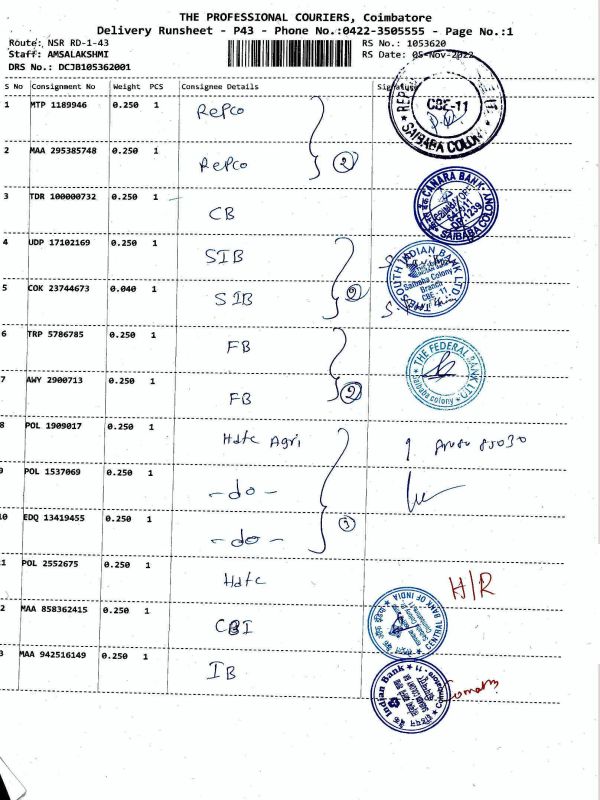 THE PROFESSIONAL COURIERS, Coimbatore
Delivery Runsheet - P43 - Phone No.:0422-3505555 - Page No.:1
Route: NSR RD-1-43
RS No.: 1053620
Staff: AMSALAKSHMI
RS Date: 05-Nov-2022
DRS No.: DCJB105362001
S No Consignment No Weight PCS Consignee Details Signature
1 MTP 1189946 0.250 1 Repco
CBE-11
SAIBABA COLONY
2 MAA 295385748 0.250 1 Repco 2
3 TDR 100000732 0.250 1 CB
CANARA BANK
DP-1239
SAIBABA COLONY
4 UDP 17102169 0.250 1 SIB
THE SOUTH INDIAN BANK LTD.
Saibaba Colony
Branch
CBE - 11
5 COK 23744673 0.040 1 SIB 2
6 TRP 5786785 0.250 1 FB
THE FEDERAL BANK LTD.
Saibaba colony
7 AWY 2900713 0.250 1 FB 2
8 POL 1909017 0.250 1 Hdfc Agri
9 POL 1537069 0.250 1 -do-
3
10 EDQ 13419455 0.250 1 -do-
1 POL 2552675 0.250 1 Hdfc H/R
2 MAA 858362415 0.250 1 CBI
CENTRAL BANK OF INDIA
3 MAA 942516149 0.250 1 IB
Indian Bank